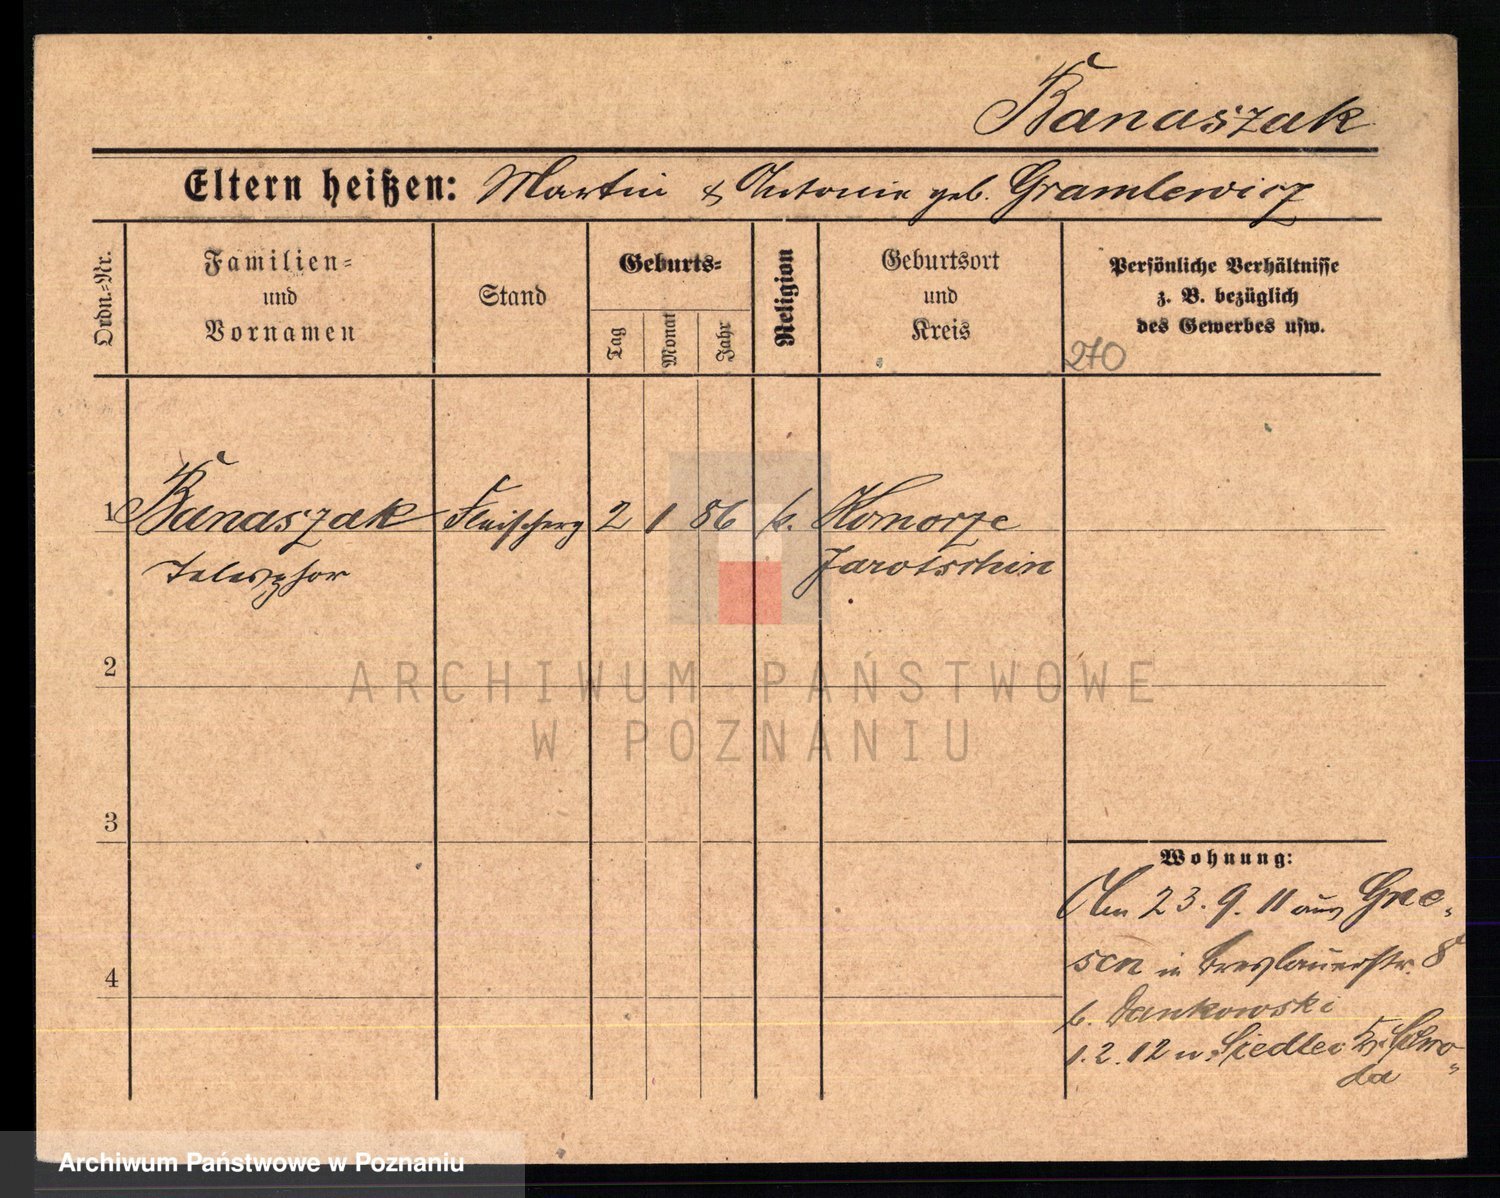 Banaszak
Eltern heißen: Martin & Antonie geb. Gramlewicz
Ordn.-Nr.
Familien-
und
Vornamen
Stand
Geburts-
Tag
Monat
Jahr
Religion
Geburtsort
und
Kreis
Persönliche Verhältnisse
z. B. bezüglich
des Gewerbes usw.
270
1 Banaszak Fleischerg 2 1 86 k. Komorze
Telesphor Jarotschin
2
3
4
Wohnung:
Am 23. 9. 11 aus Gne-
sen in Breslauerstr. 8
b. Dankowski
1. 2. 12 n. Siedlec Kr. Schro-
da
ARCHIWUM PAŃSTWOWE
W POZNANIU
Archiwum Państwowe w Poznaniu